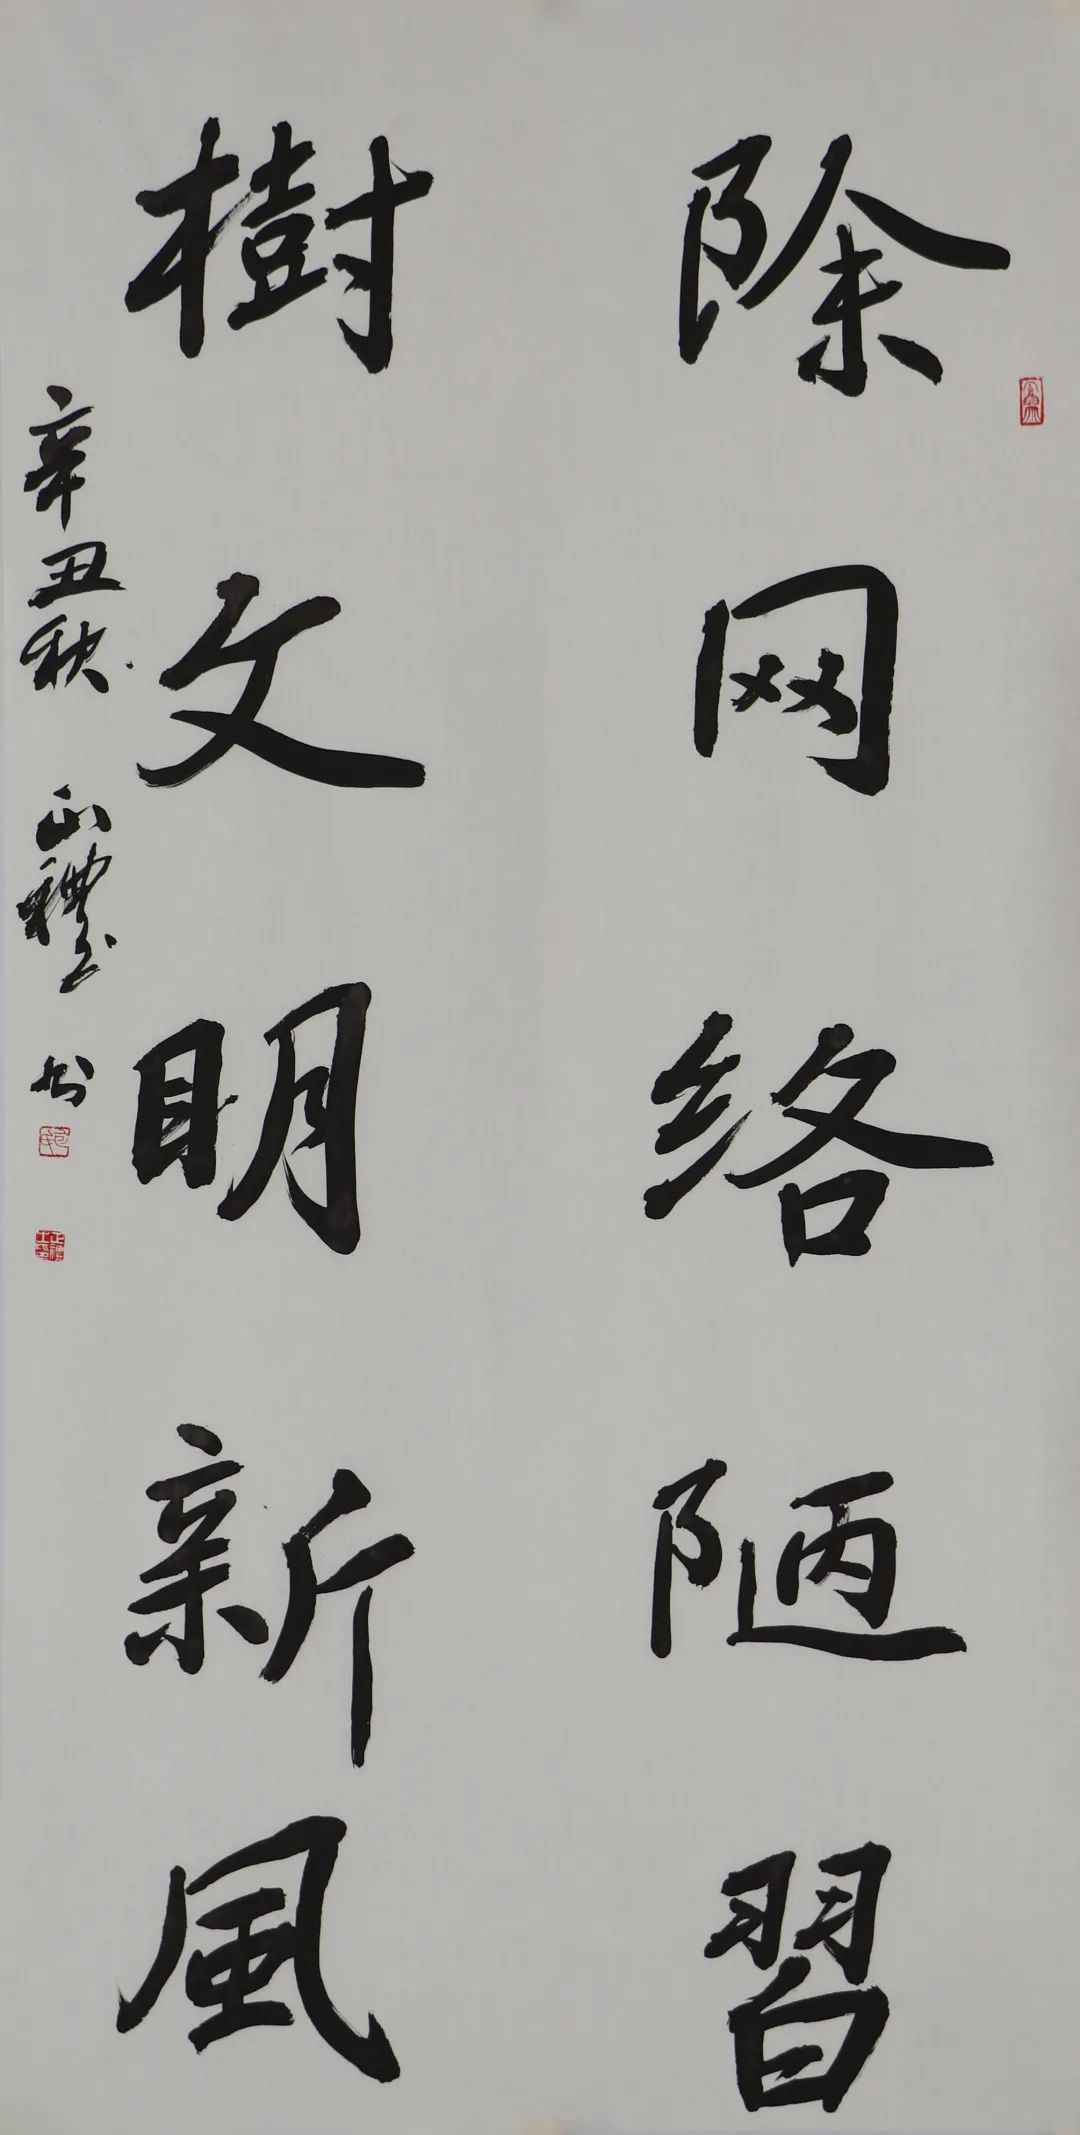 除网络陋習
樹文明新風
辛丑秋 正禮书